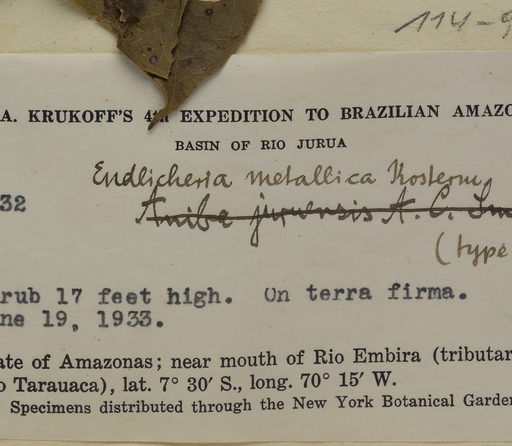 114-9
A. KRUKOFF'S 4th EXPEDITION TO BRAZILIAN AMAZO
BASIN OF RIO JURUA
Endlicheria metallica Kosterm.
32
Aniba juruensis A. C. Sm
(type
rub 17 feet high. On terra firma.
ne 19, 1933.
ate of Amazonas; near mouth of Rio Embira (tributar
o Tarauaca), lat. 7° 30′ S., long. 70° 15′ W.
Specimens distributed through the New York Botanical Garde